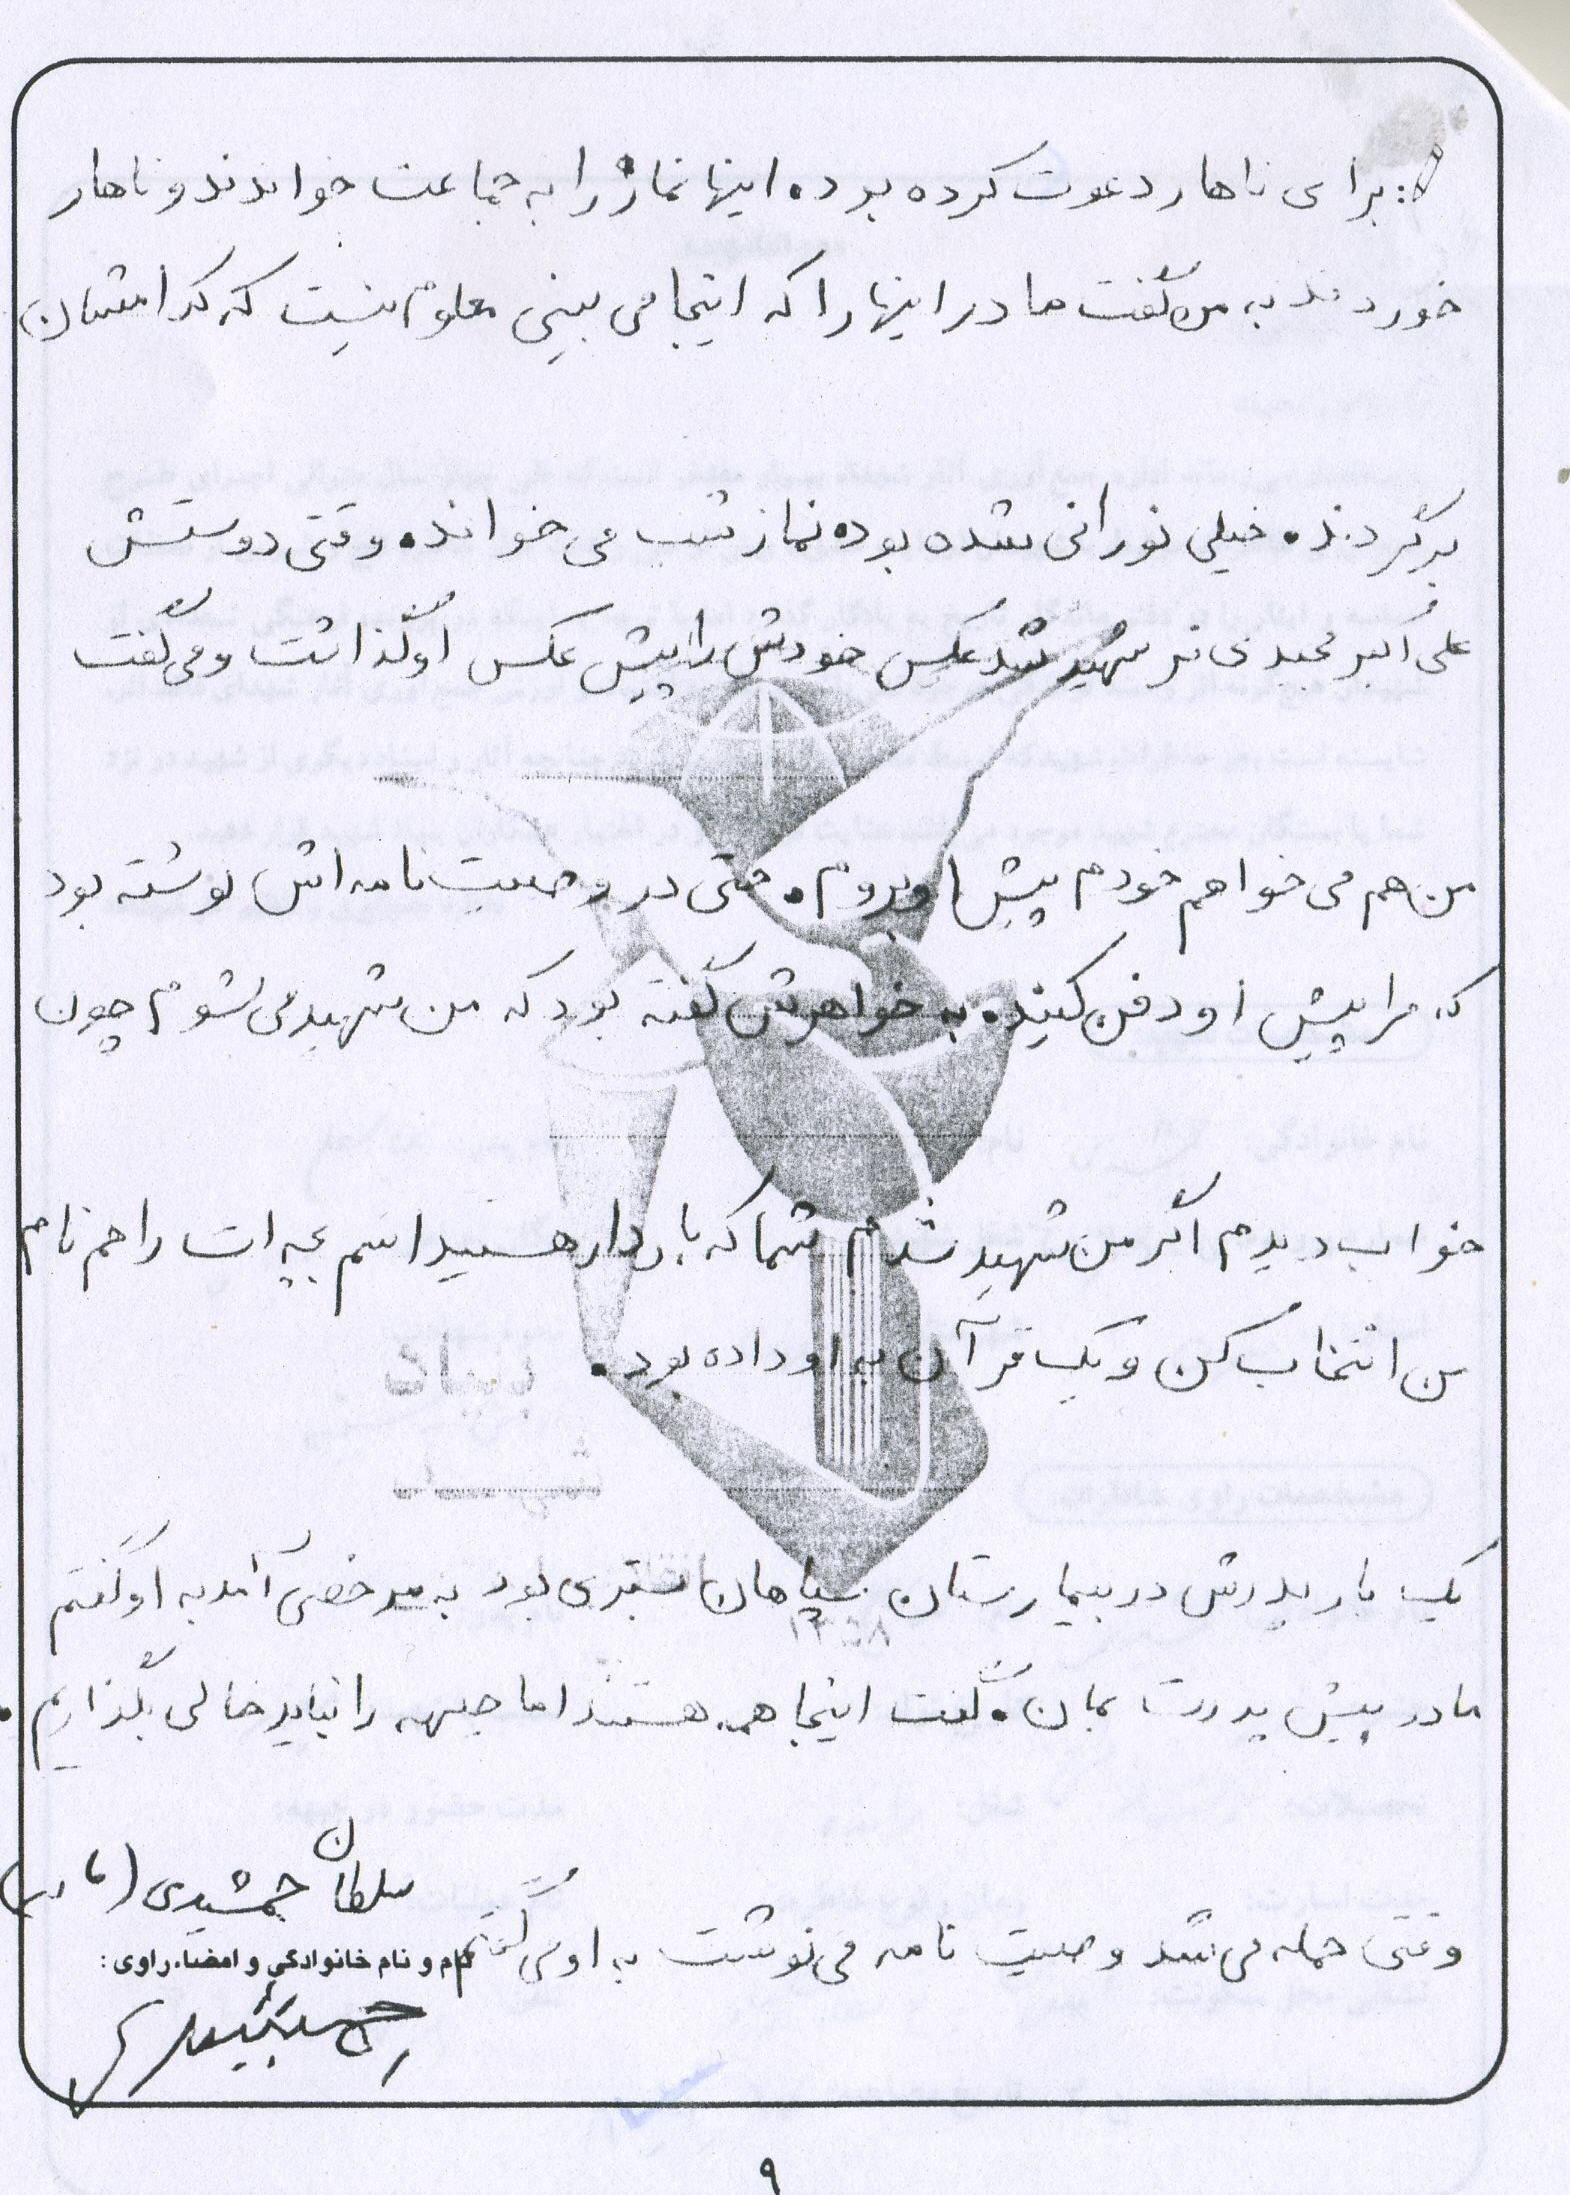 برای ناهار دعوت کرده بود. اینها نماز را به جماعت خواندند و ناهار
خوردند به من گفت مادر اینها را که اینجا می بینی معلوم نیست که کدامشان
برگردند. خیلی نورانی شده بود. نماز شب می خواند. وقتی دوستش
علی اکبر شهید شد عکس خودش را پیش عکس او گذاشت و می گفت
من هم می خواهم خودم پیش او بروم. حتی در وصیت نامه اش نوشته بود
که مرا پیش او دفن کنید. به خواهرش گفته بود که من شهید می شوم چون
خواب دیدم اگر من شهید شدم شما که باردار هستید اسم بچه ات را هم نام
من انتخاب کن و یک قرآن به او داده بود.
بنیاد
شهید
یک بار پدرش در بیمارستان سپاهان بستری بود به مرخصی آمد به او گفتم
۱۳۵۸
مادر پیش پدرت بمان. گفت اینجا همه هستند اما جبهه را نباید خالی بگذاریم.
سلطان جمشیدی (مادر)
وقتی حمله می شد وصیت نامه می نوشت به او می گفتم
نام و نام خانوادگی و امضاء راوی:
۹